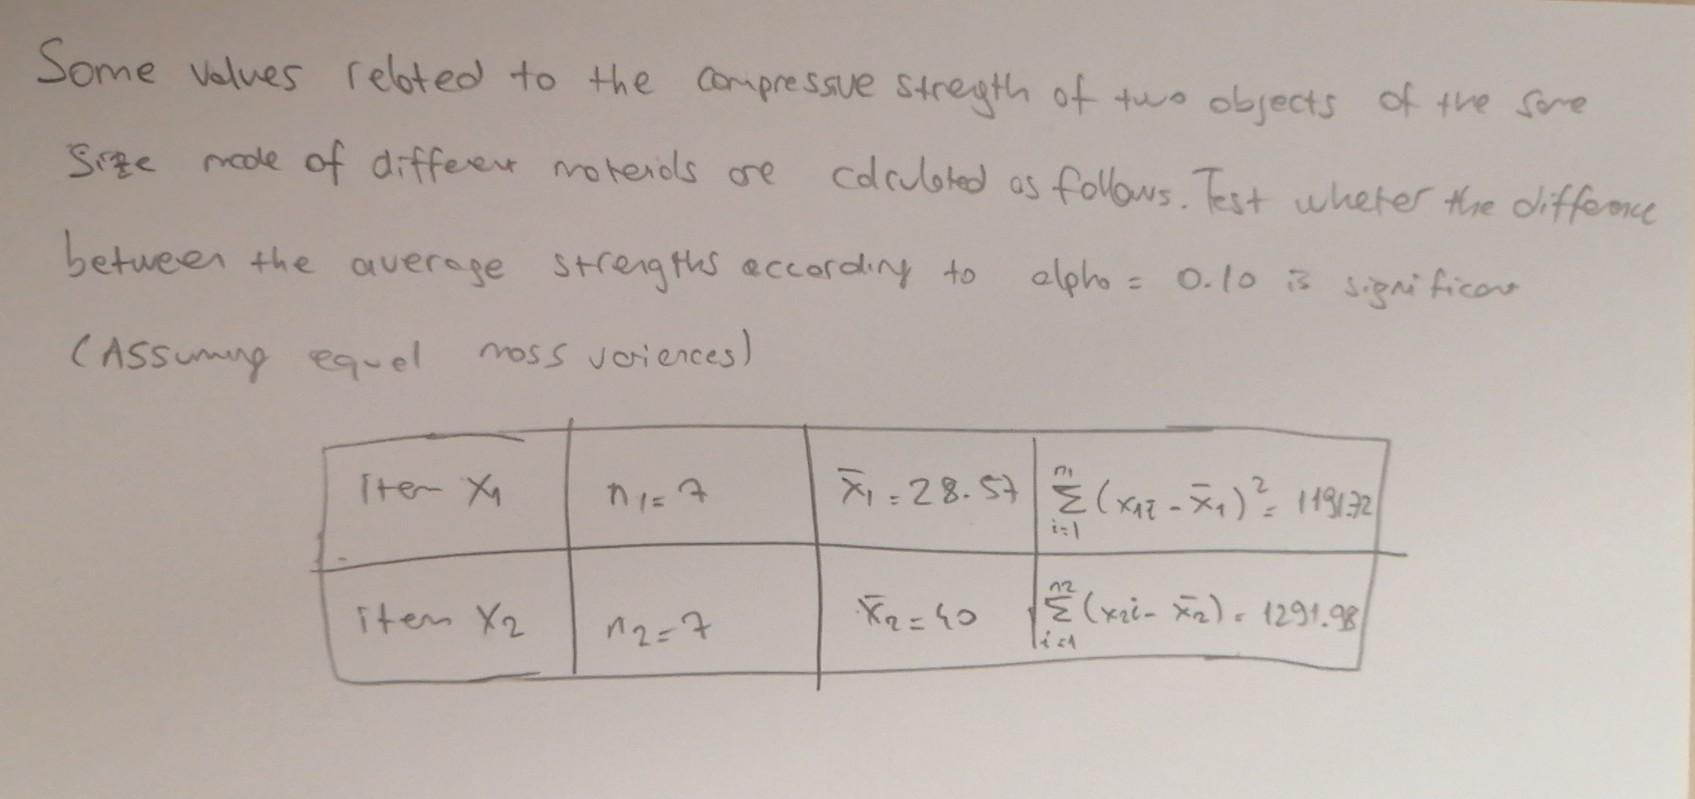 Some values related to the compressive strength of two objects of the same
Size made of different materials are calculated as follows. Test wheter the difference
between the average strengths according to alpha = 0.10 is significant
(Assuming equal mass variences)
item X₁ n₁ = 7 x̄₁ = 28.57 n₁ Σ i=1 (x₁i - x̄₁)² = 1191.72
item X₂ n₂ = 7 x̄₂ = 40 n2 Σ i=1 (x₂i - x̄₂) = 1291.98